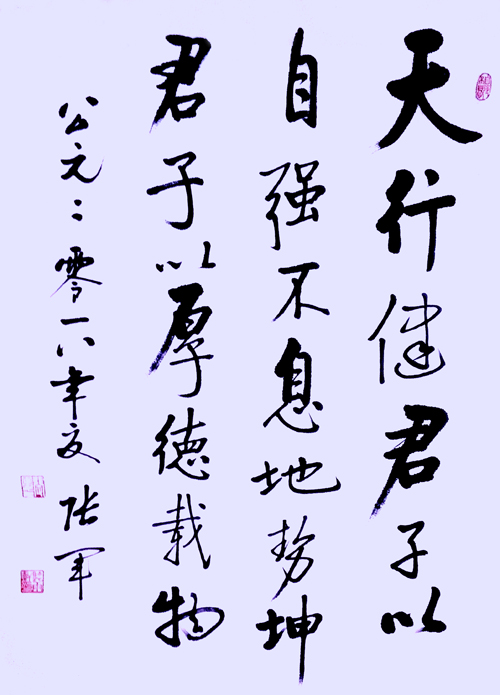 天行健君子以
自强不息地势坤
君子以厚德载物
公元二零一八年夏张军